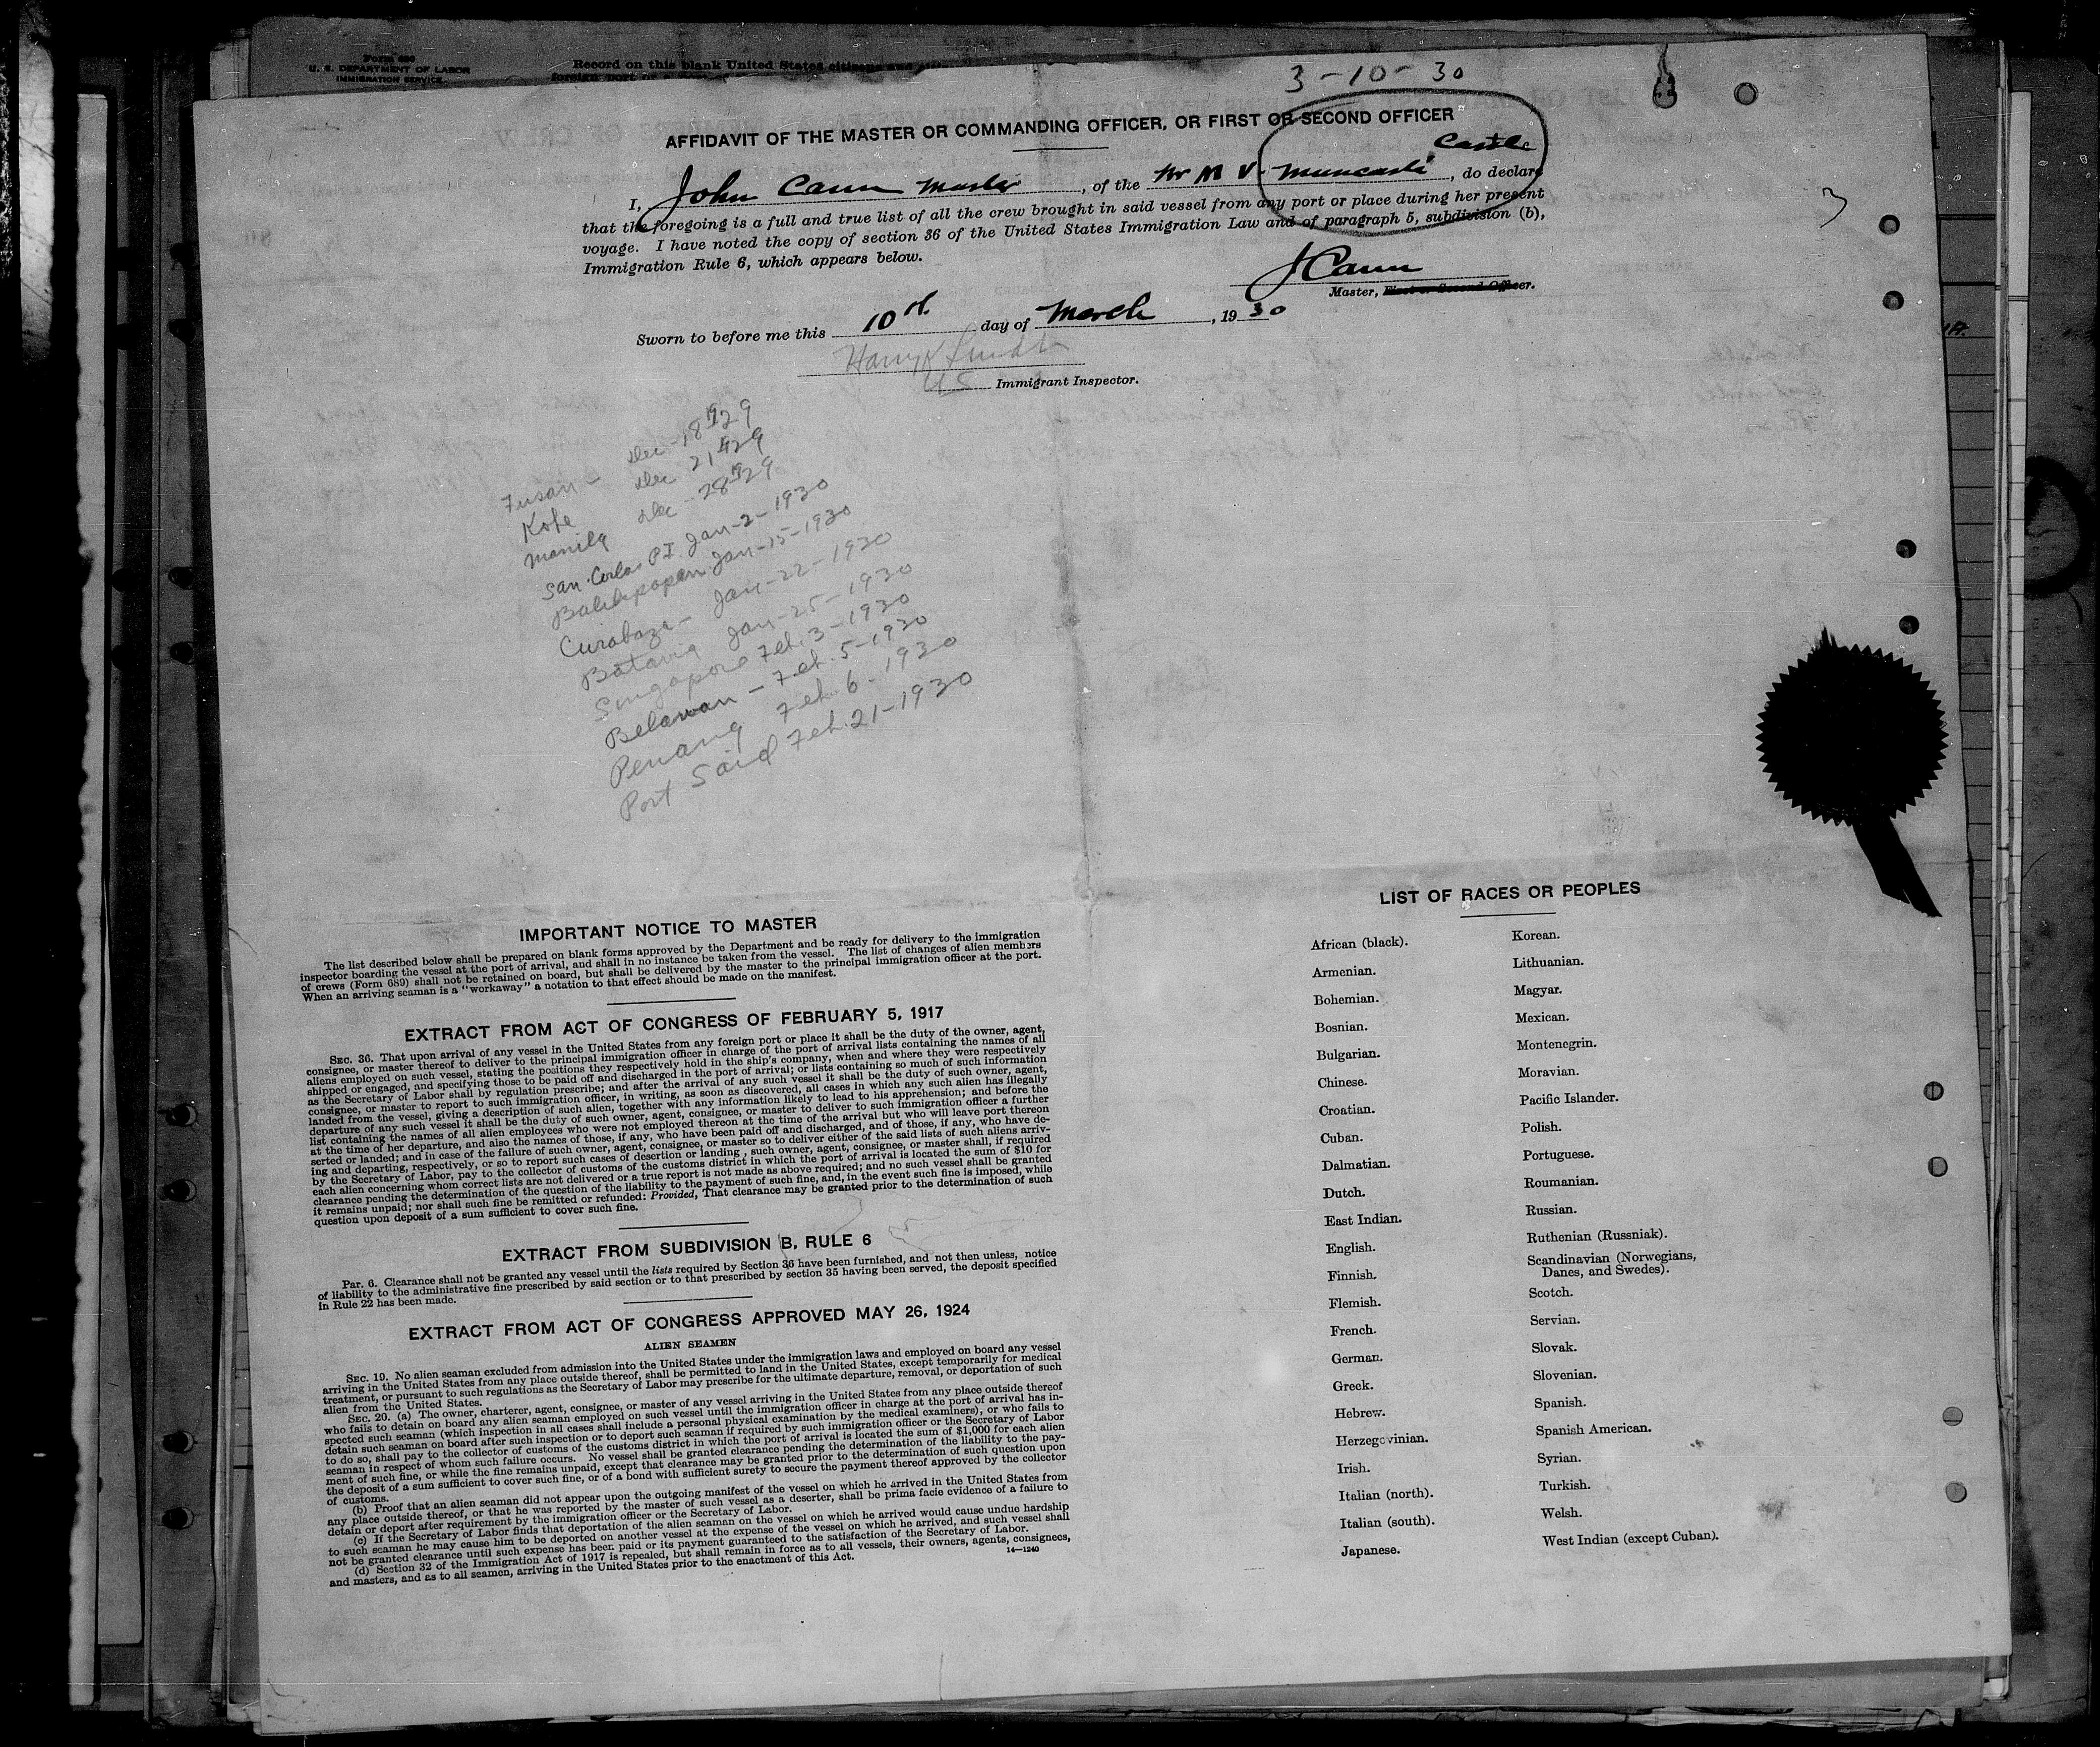 Form 680
U. S. DEPARTMENT OF LABOR
IMMIGRATION SERVICE
Record on this blank United States citizens and
foreign port
3-10-30
AFFIDAVIT OF THE MASTER OR COMMANDING OFFICER, OR FIRST OR SECOND OFFICER
Castle
I, John Cann Master, of the Br M V. Muncaster, do declare
that the foregoing is a full and true list of all the crew brought in said vessel from any port or place during her present
voyage. I have noted the copy of section 36 of the United States Immigration Law and of paragraph 5, subdivision (b),
Immigration Rule 6, which appears below.
J Cann
Master, First or Second Officer.
Sworn to before me this 10th day of March, 1930
Harry
US Immigrant Inspector.
3
Fusan - Dec 18 1929
Kobe Dec 21 1929
Manila Dec - 28 1929
San Carlos P.I. Jan-2-1930
Balikpapan Jan-15-1930
Curabaya - Jan-22-1930
Batavia Jan-25-1930
Singapore Feb. 3-1930
Belawan - Feb. 5-1930
Penang Feb. 6-1930
Port Said Feb. 21-1930
IMPORTANT NOTICE TO MASTER
The list described below shall be prepared on blank forms approved by the Department and be ready for delivery to the immigration
inspector boarding the vessel at the port of arrival, and shall in no instance be taken from the vessel. The list of changes of alien members
of crews (Form 689) shall not be retained on board, but shall be delivered by the master to the principal immigration officer at the port.
When an arriving seaman is a "workaway" a notation to that effect should be made on the manifest.
EXTRACT FROM ACT OF CONGRESS OF FEBRUARY 5, 1917
SEC. 36. That upon arrival of any vessel in the United States from any foreign port or place it shall be the duty of the owner, agent,
consignee, or master thereof to deliver to the principal immigration officer in charge of the port of arrival lists containing the names of all
aliens employed on such vessel, stating the positions they respectively hold in the ship's company, when and where they were respectively
shipped or engaged, and specifying those to be paid off and discharged in the port of arrival; or lists containing so much of such information
as the Secretary of Labor shall by regulation prescribe; and after the arrival of any such vessel it shall be the duty of such owner, agent,
consignee, or master to report to such immigration officer, in writing, as soon as discovered, all cases in which any such alien has illegally
landed from the vessel, giving a description of such alien, together with any information likely to lead to his apprehension; and before the
departure of any such vessel it shall be the duty of such owner, agent, consignee, or master to deliver to such immigration officer a further
list containing the names of all alien employees who were not employed thereon at the time of the arrival but who will leave port thereon
at the time of her departure, and also the names of those, if any, who have been paid off and discharged, and of those, if any, who have de-
serted or landed; and in case of the failure of such owner, agent, consignee, or master so to deliver either of the said lists of such aliens arriv-
ing and departing, respectively, or so to report such cases of desertion or landing , such owner, agent, consignee, or master shall, if required
by the Secretary of Labor, pay to the collector of customs of the customs district in which the port of arrival is located the sum of $10 for
each alien concerning whom correct lists are not delivered or a true report is not made as above required; and no such vessel shall be granted
clearance pending the determination of the question of the liability to the payment of such fine, and, in the event such fine is imposed, while
it remains unpaid; nor shall such fine be remitted or refunded: Provided, That clearance may be granted prior to the determination of such
question upon deposit of a sum sufficient to cover such fine.
EXTRACT FROM SUBDIVISION B, RULE 6
Par. 6. Clearance shall not be granted any vessel until the lists required by Section 36 have been furnished, and not then unless, notice
of liability to the administrative fine prescribed by said section or to that prescribed by section 35 having been served, the deposit specified
in Rule 22 has been made.
EXTRACT FROM ACT OF CONGRESS APPROVED MAY 26, 1924
ALIEN SEAMEN
SEC. 19. No alien seaman excluded from admission into the United States under the immigration laws and employed on board any vessel
arriving in the United States from any place outside thereof, shall be permitted to land in the United States, except temporarily for medical
treatment, or pursuant to such regulations as the Secretary of Labor may prescribe for the ultimate departure, removal, or deportation of such
alien from the United States.
SEC. 20. (a) The owner, charterer, agent, consignee, or master of any vessel arriving in the United States from any place outside thereof
who fails to detain on board any alien seaman employed on such vessel until the immigration officer in charge at the port of arrival has in-
spected such seaman (which inspection in all cases shall include a personal physical examination by the medical examiners), or who fails to
detain such seaman on board after such inspection or to deport such seaman if required by such immigration officer or the Secretary of Labor
to do so, shall pay to the collector of customs of the customs district in which the port of arrival is located the sum of $1,000 for each alien
seaman in respect of whom such failure occurs. No vessel shall be granted clearance pending the determination of the liability to the pay-
ment of such fine, or while the fine remains unpaid, except that clearance may be granted prior to the determination of such question upon
the deposit of a sum sufficient to cover such fine, or of a bond with sufficient surety to secure the payment thereof approved by the collector
of customs.
(b) Proof that an alien seaman did not appear upon the outgoing manifest of the vessel on which he arrived in the United States from
any place outside thereof, or that he was reported by the master of such vessel as a deserter, shall be prima facie evidence of a failure to
detain or deport after requirement by the immigration officer or the Secretary of Labor.
(c) If the Secretary of Labor finds that deportation of the alien seaman on the vessel on which he arrived would cause undue hardship
to such seaman he may cause him to be deported on another vessel at the expense of the vessel on which he arrived, and such vessel shall
not be granted clearance until such expense has been paid or its payment guaranteed to the satisfaction of the Secretary of Labor.
(d) Section 32 of the Immigration Act of 1917 is repealed, but shall remain in force as to all vessels, their owners, agents, consignees,
and masters, and as to all seamen, arriving in the United States prior to the enactment of this Act.
14—1240
LIST OF RACES OR PEOPLES
African (black).
Armenian.
Bohemian.
Bosnian.
Bulgarian.
Chinese.
Croatian.
Cuban.
Dalmatian.
Dutch.
East Indian.
English.
Finnish.
Flemish.
French.
German.
Greek.
Hebrew.
Herzegovinian.
Irish.
Italian (north).
Italian (south).
Japanese.
Korean.
Lithuanian.
Magyar.
Mexican.
Montenegrin.
Moravian.
Pacific Islander.
Polish.
Portuguese.
Roumanian.
Russian.
Ruthenian (Russniak).
Scandinavian (Norwegians,
Danes, and Swedes).
Scotch.
Servian.
Slovak.
Slovenian.
Spanish.
Spanish American.
Syrian.
Turkish.
Welsh.
West Indian (except Cuban).